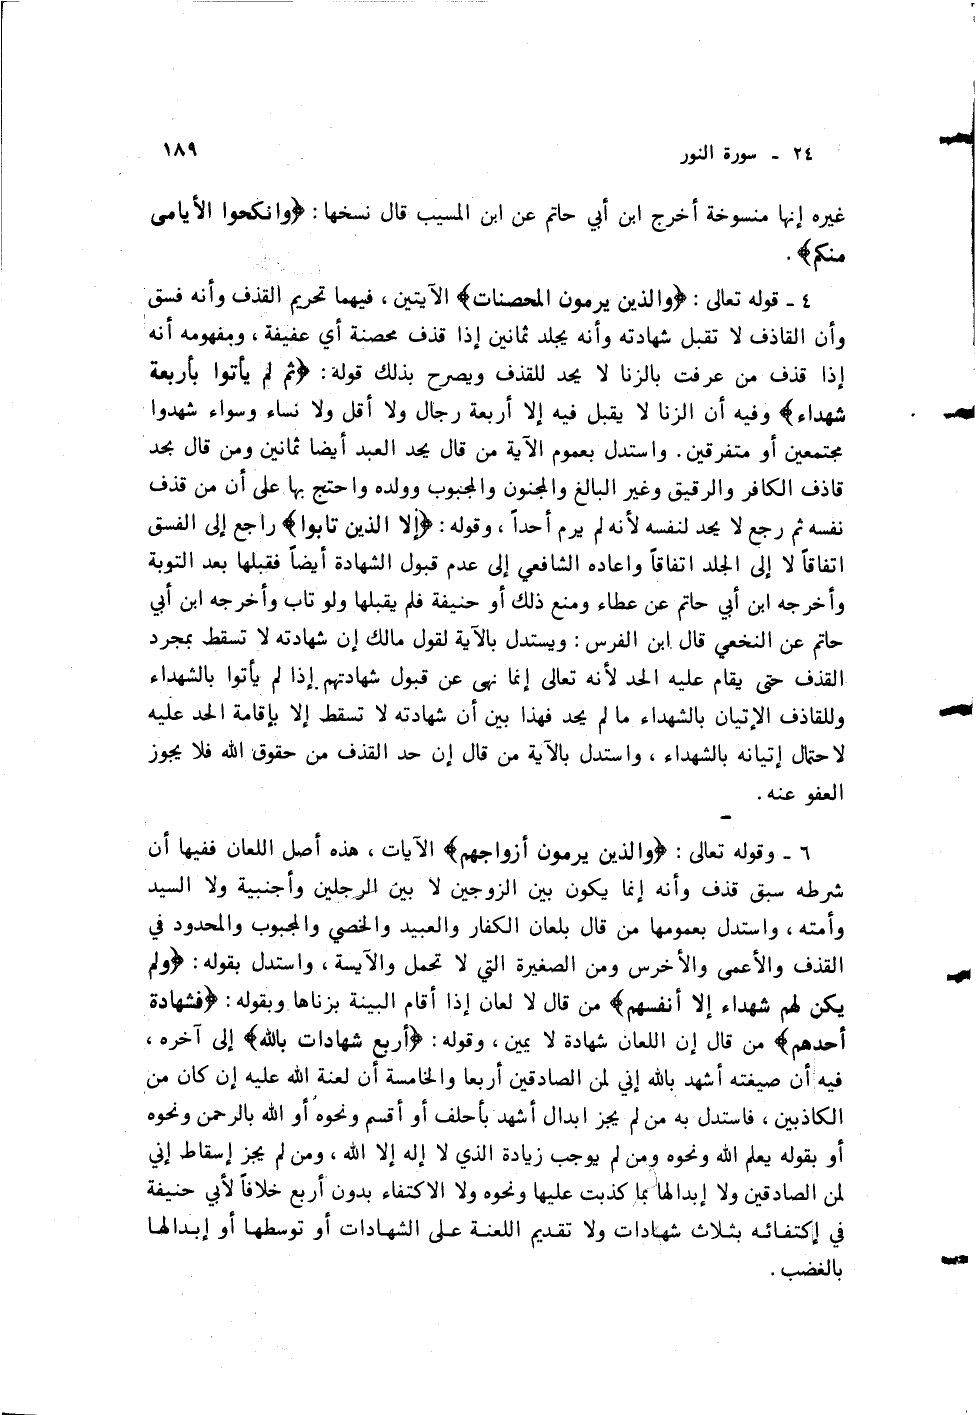 ٢٤ - سورة النور ١٨٩
غيره إنها منسوخة أخرج ابن أبي حاتم عن ابن المسيب قال نسخها : ﴿وانكحوا الأيامى
منكم﴾ .
٤ - قوله تعالى : ﴿والذين يرمون المحصنات﴾ الآيتين ، فيهما تحريم القذف وأنه فسق
وأن القاذف لا تقبل شهادته وأنه يجلد ثمانين إذا قذف محصنة أي عفيفة ، ومفهومه أنه
إذا قذف من عرفت بالزنا لا يحد للقذف ويصرح بذلك قوله : ﴿ثم لم يأتوا بأربعة
شهداء﴾ وفيه أن الزنا لا يقبل فيه إلا أربعة رجال ولا أقل ولا نساء وسواء شهدوا
مجتمعين أو متفرقين . واستدل بعموم الآية من قال يحد العبد أيضا ثمانين ومن قال بحد
قاذف الكافر والرقيق وغير البالغ والمجنون والمجبوب وولده واحتج بها على أن من قذف
نفسه ثم رجع لا يحد لنفسه لأنه لم يرم أحداً ، وقوله : ﴿إلا الذين تابوا﴾ راجع إلى الفسق
اتفاقاً لا إلى الجلد اتفاقاً واعاده الشافعي إلى عدم قبول الشهادة أيضاً فقبلها بعد التوبة
وأخرجه ابن أبي حاتم عن عطاء ومنع ذلك أو حنيفة فلم يقبلها ولو تاب وأخرجه ابن أبي
حاتم عن النخعي قال ابن الفرس : ويستدل بالآية لقول مالك إن شهادته لا تسقط بمجرد
القذف حتى يقام عليه الحد لأنه تعالى إنما نهى عن قبول شهادتهم إذا لم يأتوا بالشهداء
وللقاذف الإتيان بالشهداء ما لم يحد فهذا بين أن شهادته لا تسقط إلا بإقامة الحد عليه
لاحتمال إتيانه بالشهداء ، واستدل بالآية من قال إن حد القذف من حقوق الله فلا يجوز
العفو عنه .
٦ - وقوله تعالى : ﴿والذين يرمون أزواجهم﴾ الآيات ، هذه أصل اللعان ففيها أن
شرطه سبق قذف وأنه إنما يكون بين الزوجين لا بين الرجلين وأجنبية ولا السيد
وأمته ، واستدل بعمومها من قال بلعان الكفار والعبيد والخصي والمجبوب والمحدود في
القذف والأعمى والأخرس ومن الصغيرة التي لا تحمل والآيسة ، واستدل بقوله : ﴿ولم
يكن لهم شهداء إلا أنفسهم﴾ من قال لا لعان إذا أقام البينة بزناها وبقوله : ﴿فشهادة
أحدهم﴾ من قال إن اللعان شهادة لا يمين ، وقوله : ﴿أربع شهادات بالله﴾ إلى آخره ،
فيه أن صيغته أشهد بالله إني لمن الصادقين أربعا والخامسة أن لعنة الله عليه إن كان من
الكاذبين ، فاستدل به من لم يجز ابدال أشهد بأحلف أو أقسم ونحوه أو الله بالرحمن ونحوه
أو بقوله يعلم الله ونحوه ومن لم يوجب زيادة الذي لا إله إلا الله ، ومن لم يجز إسقاط إني
لمن الصادقين ولا إبدالها بما كذبت عليها ونحوه ولا الاكتفاء بدون أربع خلافاً لأبي حنيفة
في إكتفائه بثلاث شهادات ولا تقديم اللعنة على الشهادات أو توسطها أو إبدالها
بالغضب .